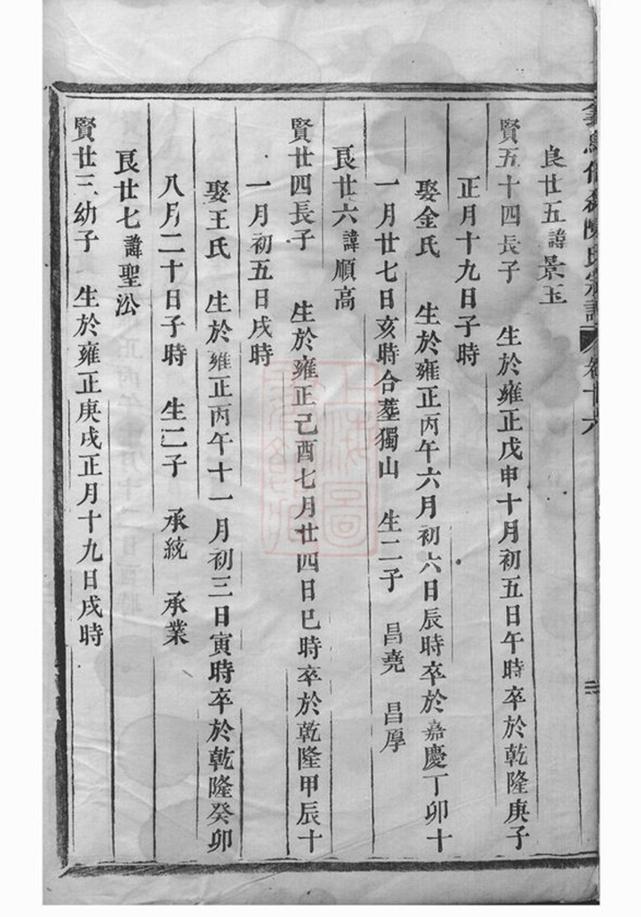 陳氏宗譜 卷十六
二
良廿五諱景玉
賢五十四長子 生於雍正戊申十月初五日午時卒於乾隆庚子
正月十九日子時
娶金氏 生於雍正丙午六月初六日辰時卒於嘉慶丁卯十
一月廿七日亥時合墓獨山 生二子 昌堯 昌厚
良廿六諱順高
賢廿四長子 生於雍正己酉七月廿四日巳時卒於乾隆甲辰十
一月初五日戌時
娶王氏 生於雍正丙午十一月初三日寅時卒於乾隆癸卯
八月二十日子時 生二子 承統 承業
良廿七諱聖㳂
賢廿三幼子 生於雍正庚戌正月十九日戌時